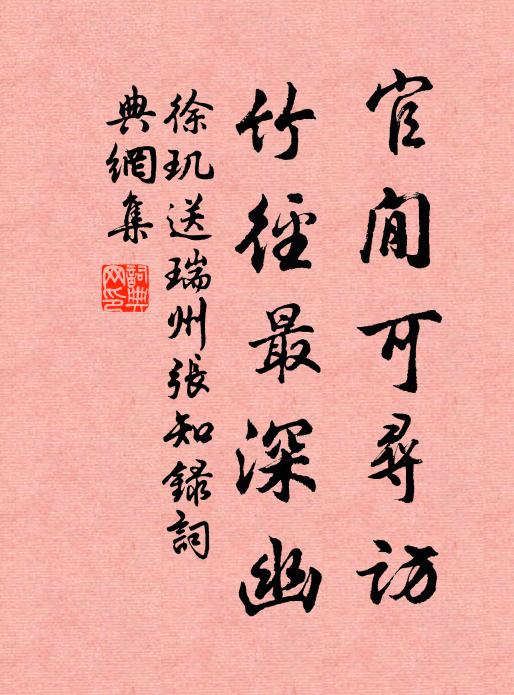 官閒可尋訪
竹徑最深幽
徐玑送瑞州張知錄詞
典網集
詞典網印